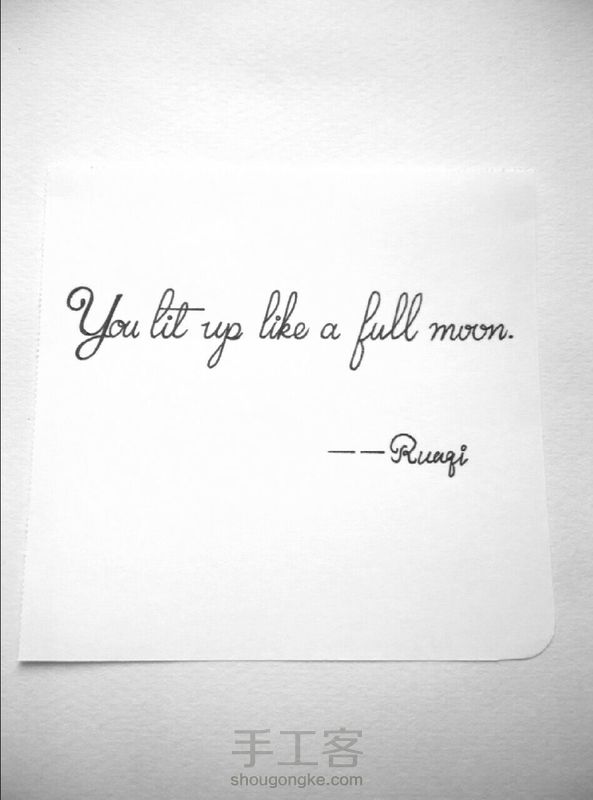 You lit up like a full moon.
——Ruaqi
手工客
shougongke.com